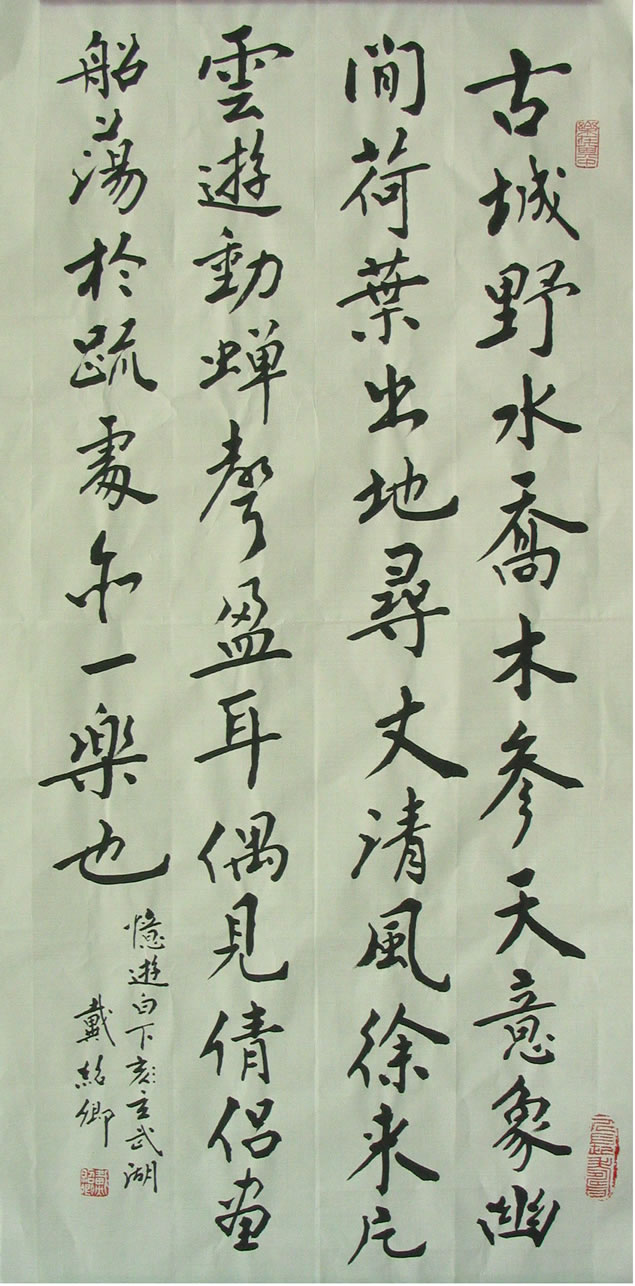 古城野水喬木參天意象幽
閒荷葉出地尋丈清風徐来片
雲遊動蝉聲盈耳偶見倩侣畫
船蕩於疏處亦一樂也
憶遊白下玄武湖
戴紹卿